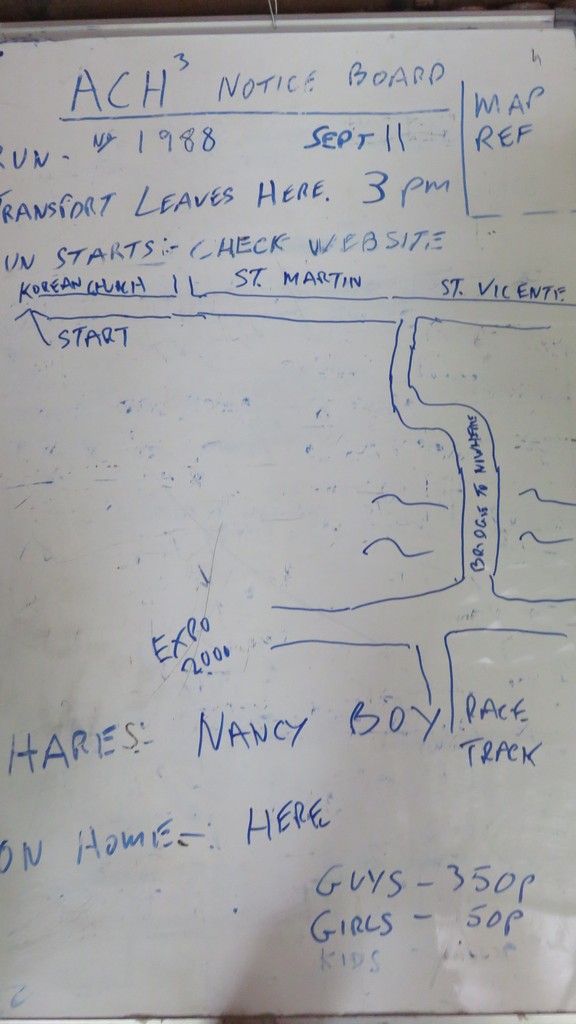 ACH³ NOTICE BOARD
MAP
REF
RUN - Nº 1988 SEPT 11
TRANSPORT LEAVES HERE. 3 pm
UN STARTS:- CHECK WEBSITE
KOREAN CHURCH ST. MARTIN ST. VICENTE
START
BRIDGE TO
EXPO
2000
HARES:- NANCY BOY
RACE
TRACK
ON HOME-: HERE
GUYS - 350p
GIRLS - 50p
KIDS